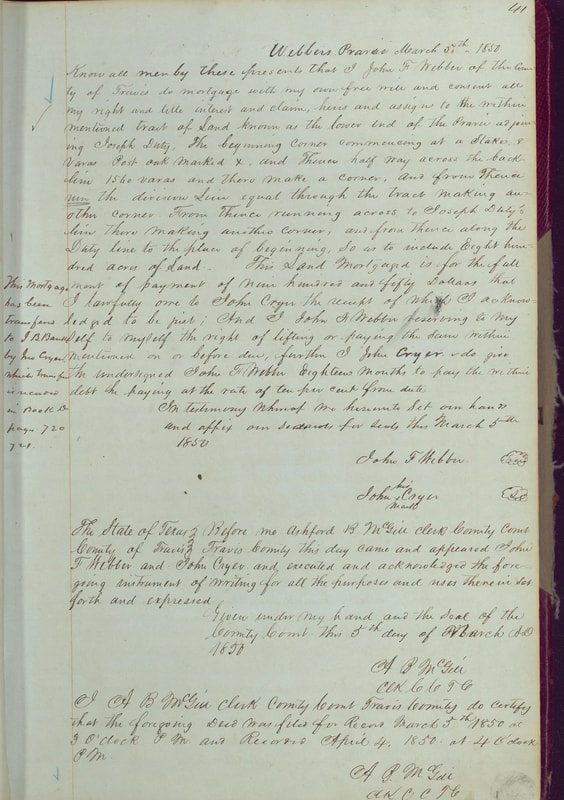 41
Webbers Prairie March 5th 1850
Know all men by these presents that I John F Webber of the Coun
ty of Travis do mortgage with my own free will and consent all
my right and title interest and claim, heirs and assigns to the within
mentioned tract of Land known as the lower end of the Prarie adjoin
ing Joseph Duty. The beginning corner commencing at a Stake, &
Varas Post oak marked X, and Thence half way across the back
line 1560 varas and there make a corner, and from Thence
run the division Line equal through the tract making an
other corner From thence running across to Joseph Duty's
line there making another corner, and from thence along the
Duty line to the place of beginning, so as to include Eight hun
dred acres of Land. This Land Mortgaged is for the full
ment of payment of nine hundred and fifty Dollars that
I lawfully owe to John Cryer the receipt of which I acknow
ledged to be just; And I John F Webber reserving to my
self to myself the right of lifting or paying the same within
mentioned on or before due, further I John Cryer do give
the undersigned John F Webber Eighteen months to pay the within
debt he paying at the rate of ten per cent from date
In testimony whereof we hereunto set our hands
and affix our for seals this March 5th
1850
John F Webber
John his Cryer
mark
This Mortgage
has been
transfered
to J B Banks
by Cryer
which transfer
is record
in Book D
page 720
721
The State of Texas } Before me Ashford B McGill clerk County Court
County of Travis } Travis County this day came and appeared John
F Webber and John Cryer and executed and acknowledged the fore
going instrument of writing for all the purposes and uses therein set
forth and expressed
Given under my hand and the seal of the
County Court this 5th day of March AD
1850
A B McGill
Clk C C T C
I A B McGill clerk County Court Travis County do certify
that the foregoing Deed was filed for Record March 5th 1850 at
3 O'clock P M and Recorded April 4, 1850 at 4 O'clock
P M
A B McGill
Clk C C T C